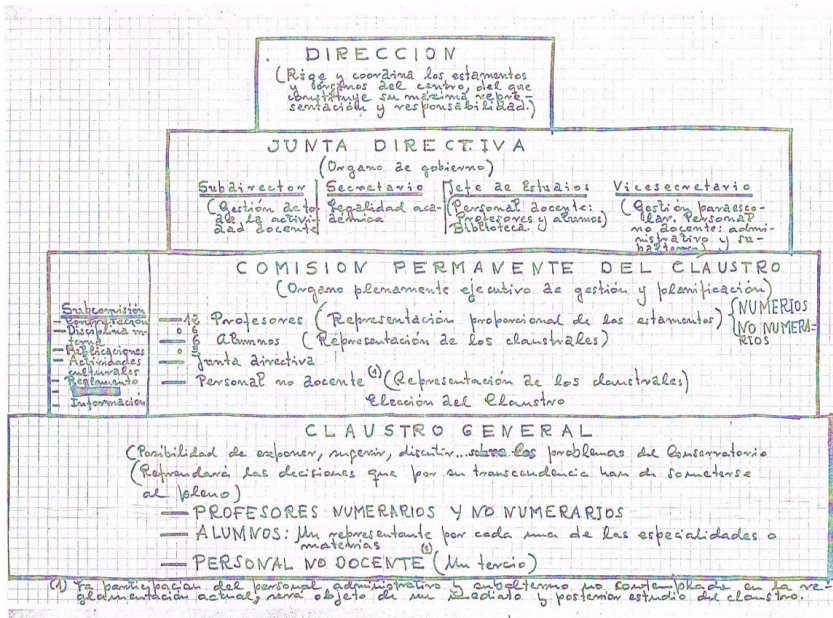 DIRECCION
(Rige y coordina los estamentos
y órganos del centro, del que
constituye su máxima repre-
sentación y responsabilidad.)
JUNTA DIRECTIVA
(Organo de gobierno)
Subdirector
(Gestión de to-
da la activi-
dad docente
Secretario
Legalidad aca-
démica
Jefe de Estudios
(Personal docente:
Profesores y alumnos)
Biblioteca
Vicesecretario
(Gestión paraesco-
lar. Personal
no docente: admi-
nistrativo y su-
balterno)
COMISION PERMANENTE DEL CLAUSTRO
(Organo plenamente ejecutivo de gestión y planificación)
Subcomisión
— Contratación
— Disciplina in-
terna
— Publicaciones
— Actividades
culturales
— Reglamento
— Información
— 12 Profesores (Representación proporcional de los estamentos) {NUMERIOS
NO NUMERA-
RIOS
— 6 Alumnos (Representación de los claustrales)
— Junta directiva
— Personal no docente (1) (Representación de los claustrales)
Elección del Claustro
CLAUSTRO GENERAL
(Posibilidad de exponer, sugerir, discutir... sobre los problemas del Conservatorio
(Refrendará las decisiones que por su transcendencia han de someterse
al pleno)
— PROFESORES NUMERARIOS Y NO NUMERARIOS
— ALUMNOS: Un representante por cada una de las especialidades o
materias
— PERSONAL NO DOCENTE (1) (Un tercio)
(1) La participación del personal administrativo y subalterno no contemplada en la re-
glamentación actual, será objeto de un inmediato y posterior estudio del claustro.